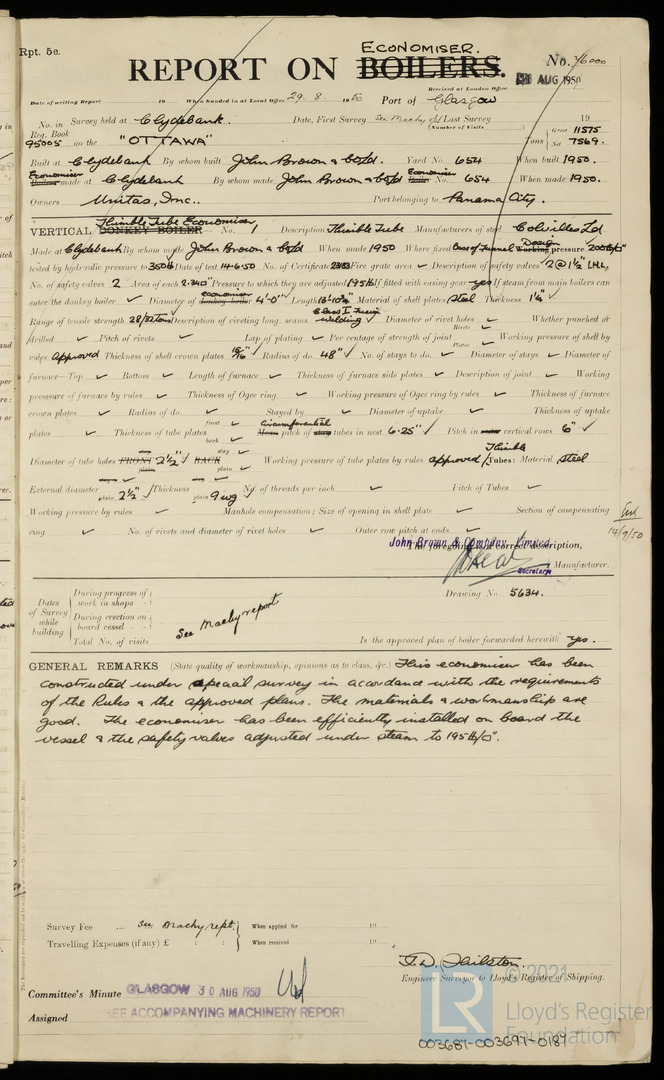 Rpt. 5c.
ECONOMISER.
REPORT ON BOILERS.
No. 76000
31 AUG 1950
Received at London Office
Date of writing Report 19 When handed in at Local Office 29. 8. 1950 Port of Glasgow
No. in Survey held at Clydebank. Date, First Survey See Machy rpt Last Survey 19
Reg. Book (Number of Visits
95005 on the "OTTAWA" Tons Gross 11575 Net 7569.
Built at Clydebank By whom built John Brown & Co Ld. Yard No. 654 When built 1950.
Economiser Boiler made at Clydebank By whom made John Brown & Co Ld Economiser Boiler No. 654 When made 1950.
Owners Unitas, Inc.. Port belonging to Panama City.
Thimble Tube Economiser
VERTICAL DONKEY BOILER No. 1 Description Thimble Tube Manufacturers of steel Colvilles Ld
Made at Clydebank By whom made John Brown & Co Ld When made 1950 Where fixed Base of Funnel Design Working pressure 200 lb/□"
tested by hydraulic pressure to 350 lb Date of test 14-6-50 No. of Certificate Fire grate area ✓ Description of safety valves 2 @ 1½" I.H.L.
No. of safety valves 2 Area of each 2.340" Pressure to which they are adjusted 195 lb If fitted with easing gear yes If steam from main boilers can
enter the donkey boiler ✓ Diameter of economiser donkey boiler 4'-0" Length 13'-10¾" Material of shell plates Steel Thickness 1¼"
Range of tensile strength 28/32 Tons Description of riveting long. seams Class I Fusion welding Diameter of rivet holes ✓ Whether punched or
drilled ✓ Pitch of rivets ✓ Lap of plating ✓ Per centage of strength of joint Rivets Plates ✓ Working pressure of shell by
rules approved Thickness of shell crown plates 15/16" Radius of do. 48" No. of stays to do. ✓ Diameter of stays ✓ Diameter of
furnace—Top ✓ Bottom ✓ Length of furnace ✓ Thickness of furnace side plates ✓ Description of joint ✓ Working
pressure of furnace by rules ✓ Thickness of Ogee ring ✓ Working pressure of Ogee ring by rules ✓ Thickness of furnace
crown plates ✓ Radius of do. ✓ Stayed by ✓ Diameter of uptake ✓ Thickness of uptake
plates ✓ Thickness of tube plates front back ✓ Circumferential Mean pitch of stay tubes in nest 6·25" ✓ Pitch in outer vertical rows 6" ✓
Diameter of tube holes FRONT stay plain 2½" BACK stay plain ✓ Working pressure of tube plates by rules approved Thimble Tubes: Material steel
External diameter stay plain 2½" Thickness stay plain 9 wg No. of threads per inch ✓ Pitch of Tubes ✓
Working pressure by rules ✓ Manhole compensation; Size of opening in shell plate ✓ Section of compensating
ring ✓ No. of rivets and diameter of rivet holes ✓ Outer row pitch at ends ✓
14/9/50
John Brown & Company, Limited
The foregoing is a correct description,
Secretary Manufacturer.
Dates of Survey while building
During progress of work in shops -
During erection on board vessel -
Total No. of visits
See Machy report
Drawing No. 5634.
Is the approved plan of boiler forwarded herewith yes.
GENERAL REMARKS (State quality of workmanship, opinions as to class, &c.) This economiser has been
constructed under special survey in accordance with the requirements
of the Rules & the approved plans. The materials & workmanship are
good. The economiser has been efficiently installed on board the
vessel & the safety valves adjusted under steam to 195 lb/□".
Survey Fee ... See Machy rept. When applied for 19
Travelling Expenses (if any) £ : : When received 19
Engineer Surveyor to Lloyd's Register of Shipping.
Committee's Minute GLASGOW 30 AUG 1950
Assigned SEE ACCOMPANYING MACHINERY REPORT
LR © 2021
Lloyd's Register
Foundation
003687-003697-0187